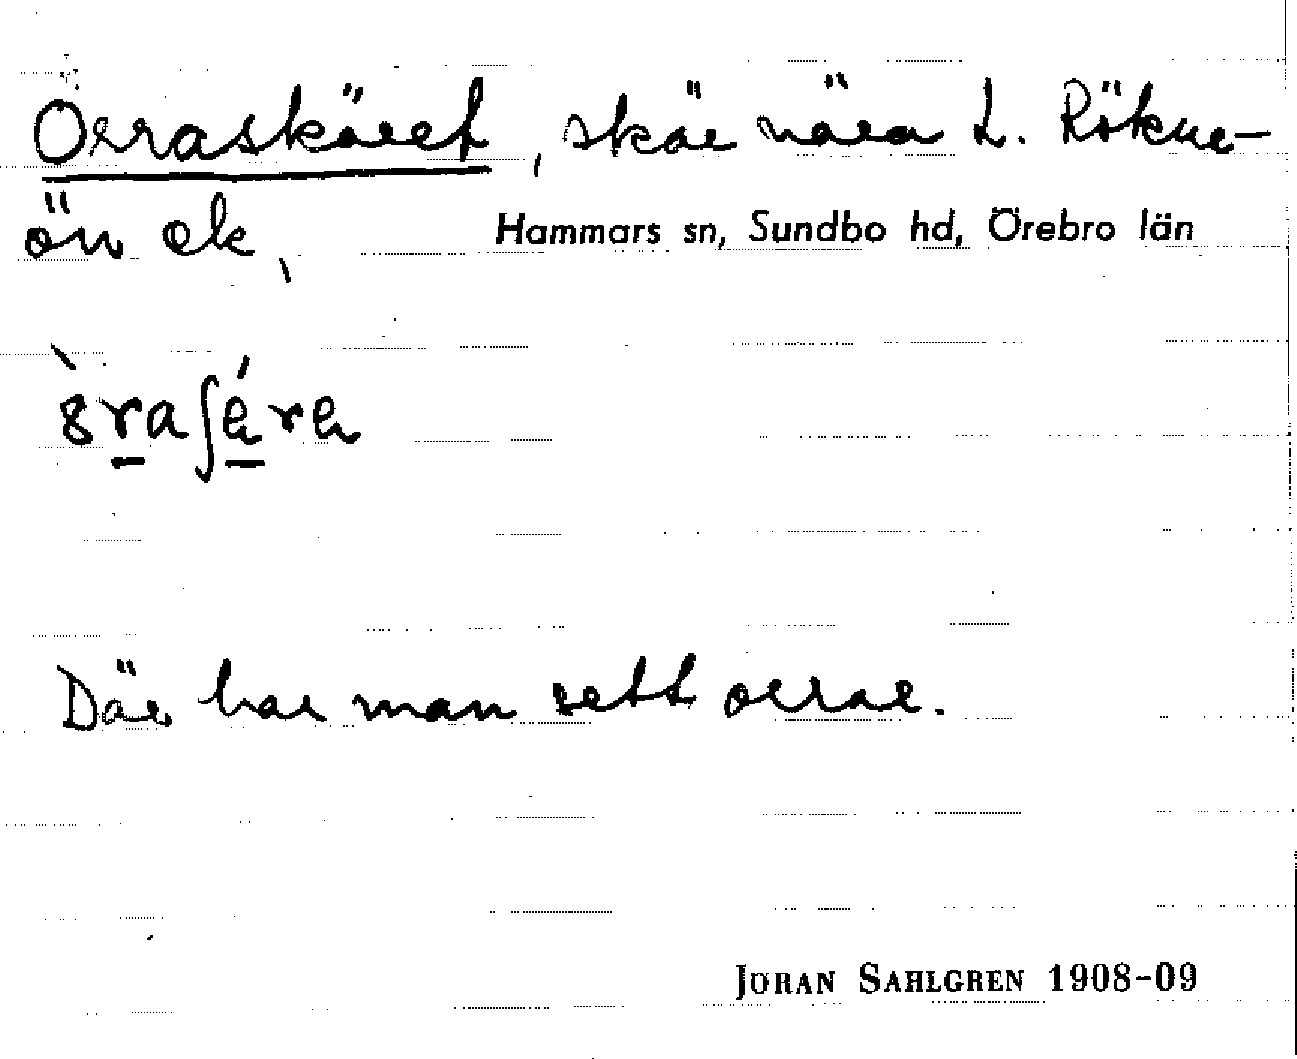 Orraskäret, skär nära L. Rökne-
ön ek,
Hammars sn, Sundbo hd, Örebro län
Där har man sett orrar.
JÖRAN SAHLGREN 1908-09